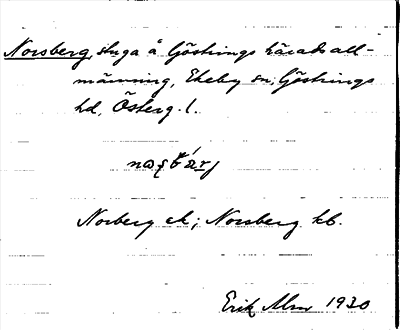 Norsberg, stuga å Göstrings härads all-
männing, Ekeby sn, Göstrings
hd, Österg. l.
Norberg ek; Norsberg kb.
Erik Alm 1930